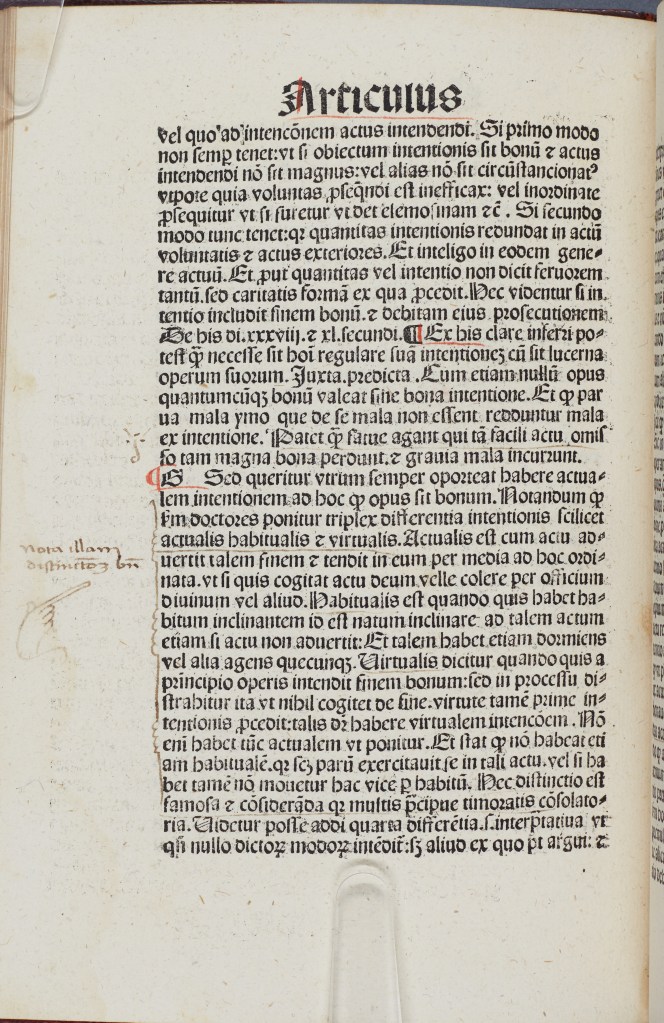 Articulus
vel quo'ad'intencōnem actus intendendi. Si primo modo
non semꝑ tenet: vt si obiectum intentionis sit bonū ⁊ actus
intendendi nō sit magnus: vel alias nō sit circūstancionatꝰ
vtpote quia voluntas ꝓseqn̄di est inefficax: vel inordinate
ꝓsequitur vt si furetur vt det elemosinam ⁊c̄. Si secundo
modo tunc tenet: qꝛ quantitas intentionis redundat in actū
voluntatis ⁊ actus exteriores. Et inteligo in eodem gene⸗
re actuū. Et ꝓut quantitas vel intentio non dicit feruorem
tantū. sed caritatis formā ex qua ꝓcedit. Hec videntur si in.
tentio includit finem bonū. ⁊ debitam eius prosecutionem
De his di. xxxviij. ⁊ xl. secundi. ¶ Ex his clare inferri po⸗
test ꝙ necesse sit hoī regulare suā intentioneꝫ cū sit lucerna
operum suorum. Juxta. predicta. Cum etiam nullū opus
quantumcūqꝫ bonū valeat sine bona intentione. Et ꝙ par
ua mala ymo que de se mala non essent redduntur mala
ex intentione. Patet ꝙ fatue agant qui tā facili actu omis
so tam magna bona perdunt. ⁊ grauia mala incurrunt.
G Sed queritur vtrum semper oporteat habere actua⸗
lem intentionem ad hoc ꝙ opus sit bonum. Notandum ꝙ
km̄ doctores ponitur triplex differentia intentionis scilicet
actualis habitualis ⁊ virtualis. Actualis est cum actu ad⸗
uertit talem finem ⁊ tendit in eum per media ad hoc ordi⸗
nata. vt si quis cogitat actu deum velle colere per officium
diuinum vel aliud. Habitualis est quando quis habet ha⸗
bitum inclinantem id est natum inclinare ad talem actum
etiam si actu non aduertit: Et talem habet etiam dormiens
vel alia agens quecunqꝫ. Virtualis dicitur quando quis a
principio operis intendit finem bonum: sed in processu di⸗
strahitur ita vt nihil cogitet de fine. virtute tamē prime in⸗
tentionis ꝓcedit: talis dꝛ habere virtualem intencōem. Nō
enī habet tūc actualem vt ponitur. Et stat ꝙ nō habeat eti
am habitualē. qꝛ scꝫ parū exercitauit se in tali actu. vel si ha
bet tamē nō mouetur hac vice ꝑ habitū. Hec distinctio est
famosa ⁊ cōsiderāda qꝛ multis p̄cipue timoratis cōsolato⸗
ria. Videtur posse addi quarta differētia. s. interp̄tatiua vt
qn̄ nullo dictoꝝ modoꝝ intēdit: sꝫ aliud ex quo p̄t argui: ⁊
nota illam
distinctōꝫ bn̄